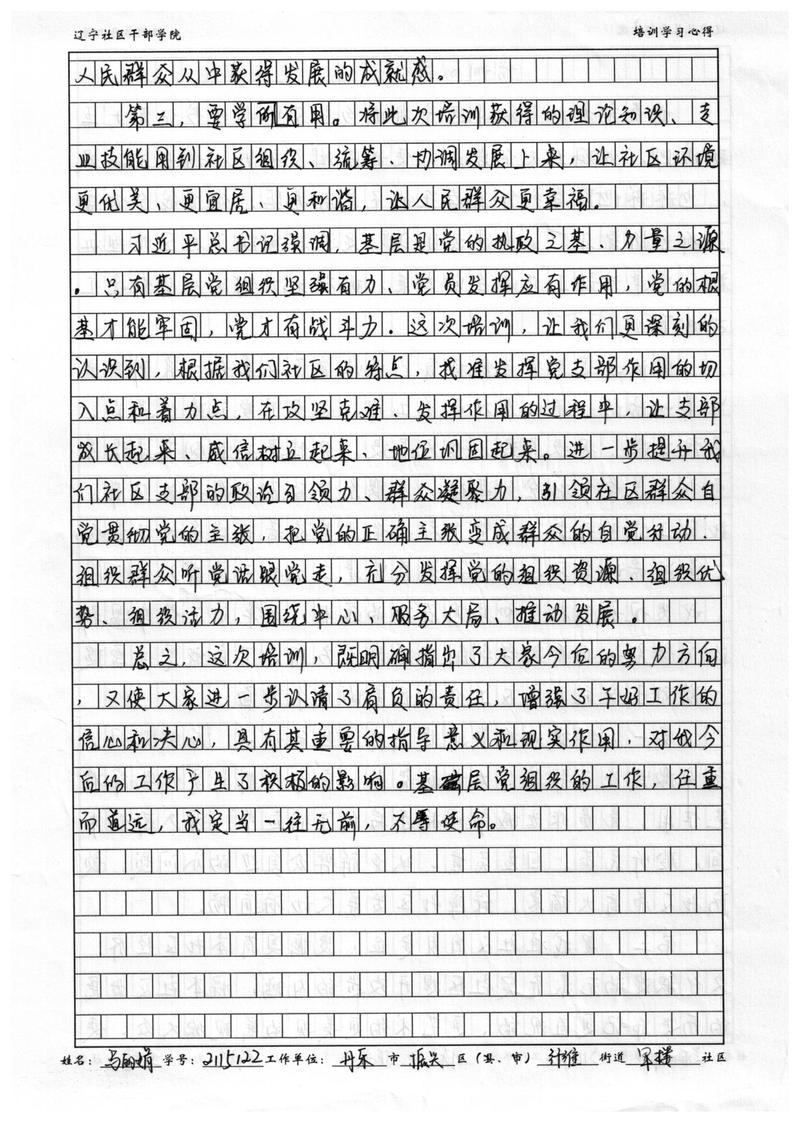 辽宁社区干部学院 培训学习心得
人民群众从中获得发展的成就感。
第三，要学所有用。将此次培训获得的理论知识、专
业技能用到社区组织、统筹、协调发展上来，让社区环境
更优美、更宜居、更和谐，让人民群众更幸福。
习近平总书记强调，基层是党的执政之基、力量之源
。只有基层党组织坚强有力、党员发挥应有作用，党的根
基才能牢固，党才有战斗力。这次培训，让我们更深刻的
认识到，根据我们社区的特点，找准发挥党支部作用的切
入点和着力点，在攻坚克难、发挥作用的过程中，让支部
成长起来、威信树立起来、地位巩固起来。进一步提升我
们社区支部的政治引领力、群众凝聚力，引领社区群众自
觉贯彻党的主张，把党的正确主张变成群众的自觉行动、
组织群众听党话跟党走，充分发挥党的组织资源、组织优
势、组织活力，围绕中心、服务大局、推动发展。
总之，这次培训，既明确指出了大家今后的努力方向
，又使大家进一步认清了肩负的责任，增强了干好工作的
信心和决心，具有其重要的指导意义和现实作用，对我今
后的工作产生了积极的影响。基层党组织的工作，任重
而道远，我定当一往无前，不辱使命。
姓名：马丽娟 学号：2115122 工作单位：丹东 市 振兴 区（县、市） 纤维 街道 社区